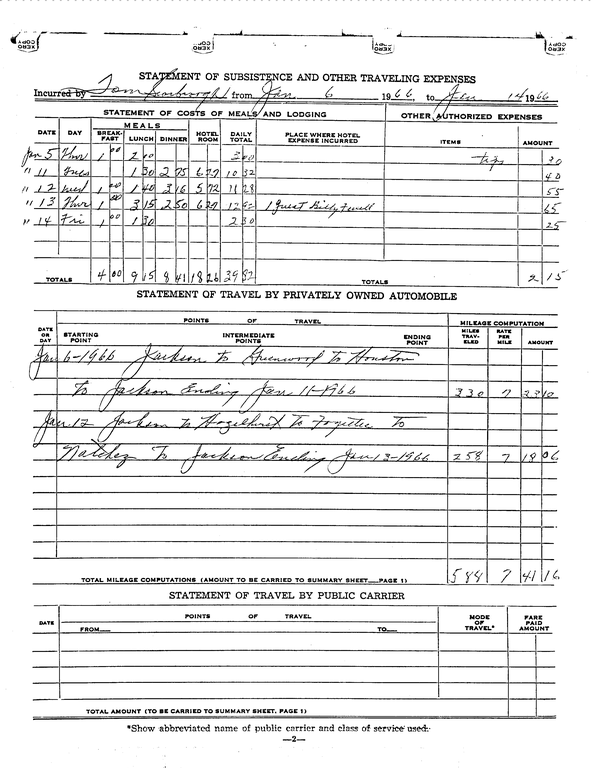 XEROX COPY XEROX COPY XEROX COPY XEROX COPY
STATEMENT OF SUBSISTENCE AND OTHER TRAVELING EXPENSES
Incurred by Tom Scarbrough from Jan. 6 1966, to Jan 14 1966
STATEMENT OF COSTS OF MEALS AND LODGING OTHER AUTHORIZED EXPENSES
DATE DAY MEALS BREAK-FAST LUNCH DINNER HOTEL ROOM DAILY TOTAL PLACE WHERE HOTEL EXPENSE INCURRED ITEMS AMOUNT
Jan 5 Thur 1 00 2 00 3 00 tips 30
" 11 Tues 1 30 2 75 6 27 10 32 40
" 12 Wed 1 00 1 40 3 16 5 72 11 28 55
" 13 Thur 1 00 3 15 2 50 6 27 12 92 1 guest Billy 65
" 14 Fri 1 00 1 30 2 30 25
TOTALS 4 00 9 15 8 41 18 26 39 82 TOTALS 2 15
STATEMENT OF TRAVEL BY PRIVATELY OWNED AUTOMOBILE
DATE OR DAY POINTS OF TRAVEL STARTING POINT INTERMEDIATE POINTS ENDING POINT MILEAGE COMPUTATION MILES TRAV-ELED RATE PER MILE AMOUNT
Jan 6-1966 Jackson to Greenwood to Houston
To Jackson Ending Jan 11-1966 330 7 23 10
Jan 12 Jackson to Hazelhurst to Fayette to
Natchez To Jackson Ending Jan 13-1966 258 7 18 06
TOTAL MILEAGE COMPUTATIONS (AMOUNT TO BE CARRIED TO SUMMARY SHEET PAGE 1) 588 7 41 16
STATEMENT OF TRAVEL BY PUBLIC CARRIER
DATE POINTS OF TRAVEL FROM TO MODE OF TRAVEL* FARE PAID AMOUNT
TOTAL AMOUNT (TO BE CARRIED TO SUMMARY SHEET. PAGE 1)
*Show abbreviated name of public carrier and class of service used.
—2—